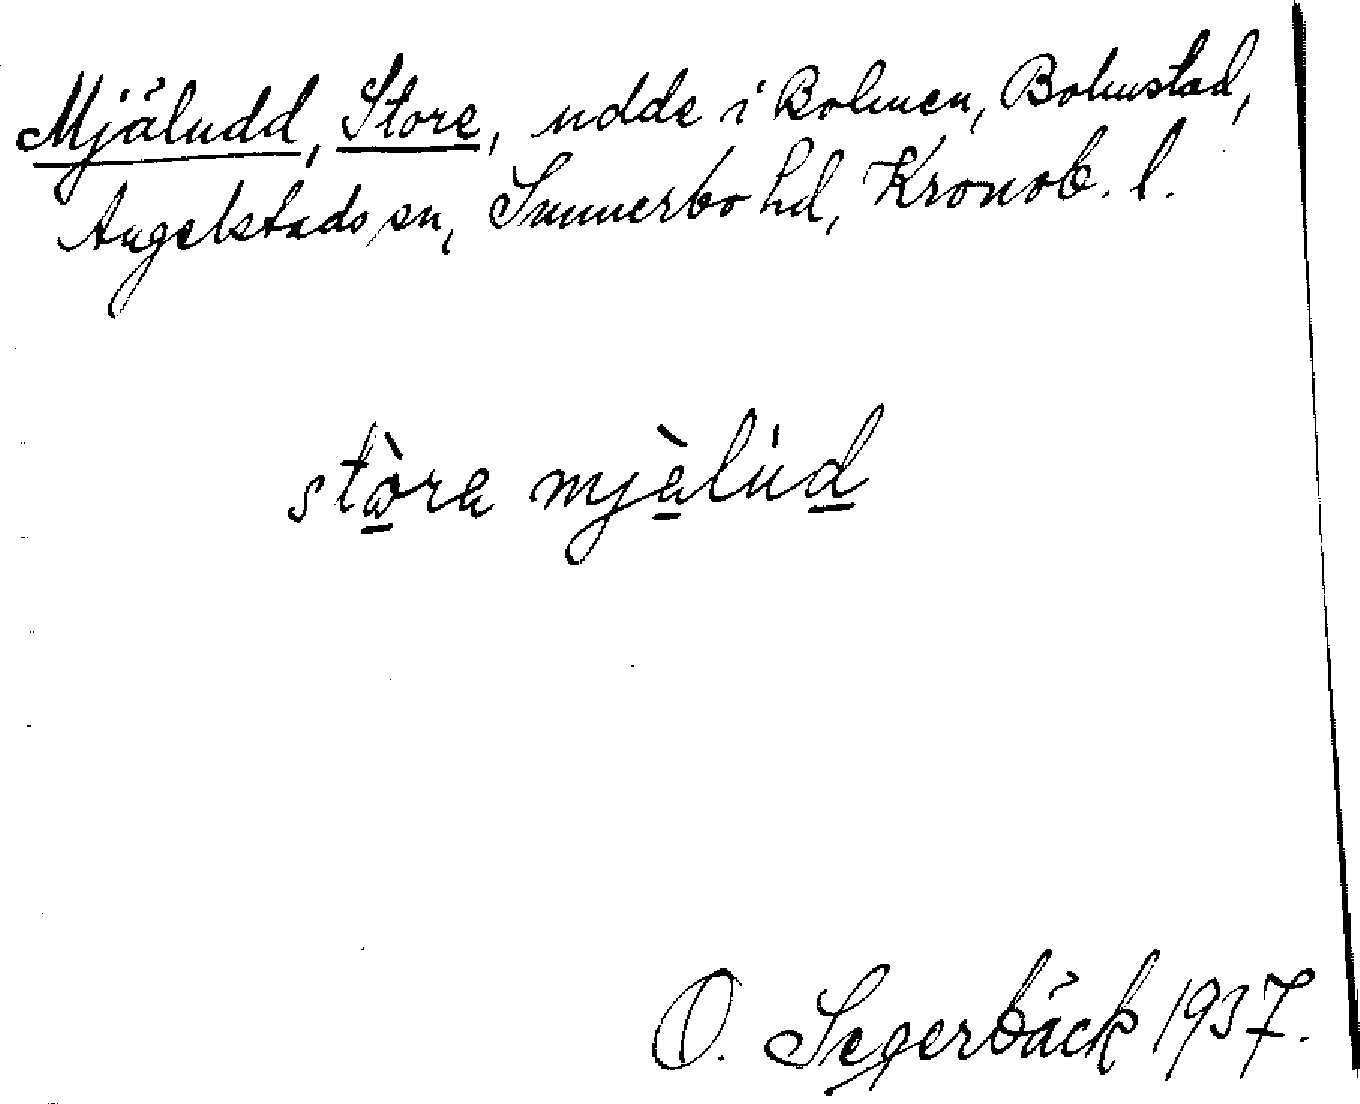 Mjäludd, Store, udde i Bolmen, Bolmstad,
Angelstads sn, Sunnerbo hd, Kronob. l.
stòra mjàlùd
O. Segerbäck 1937.